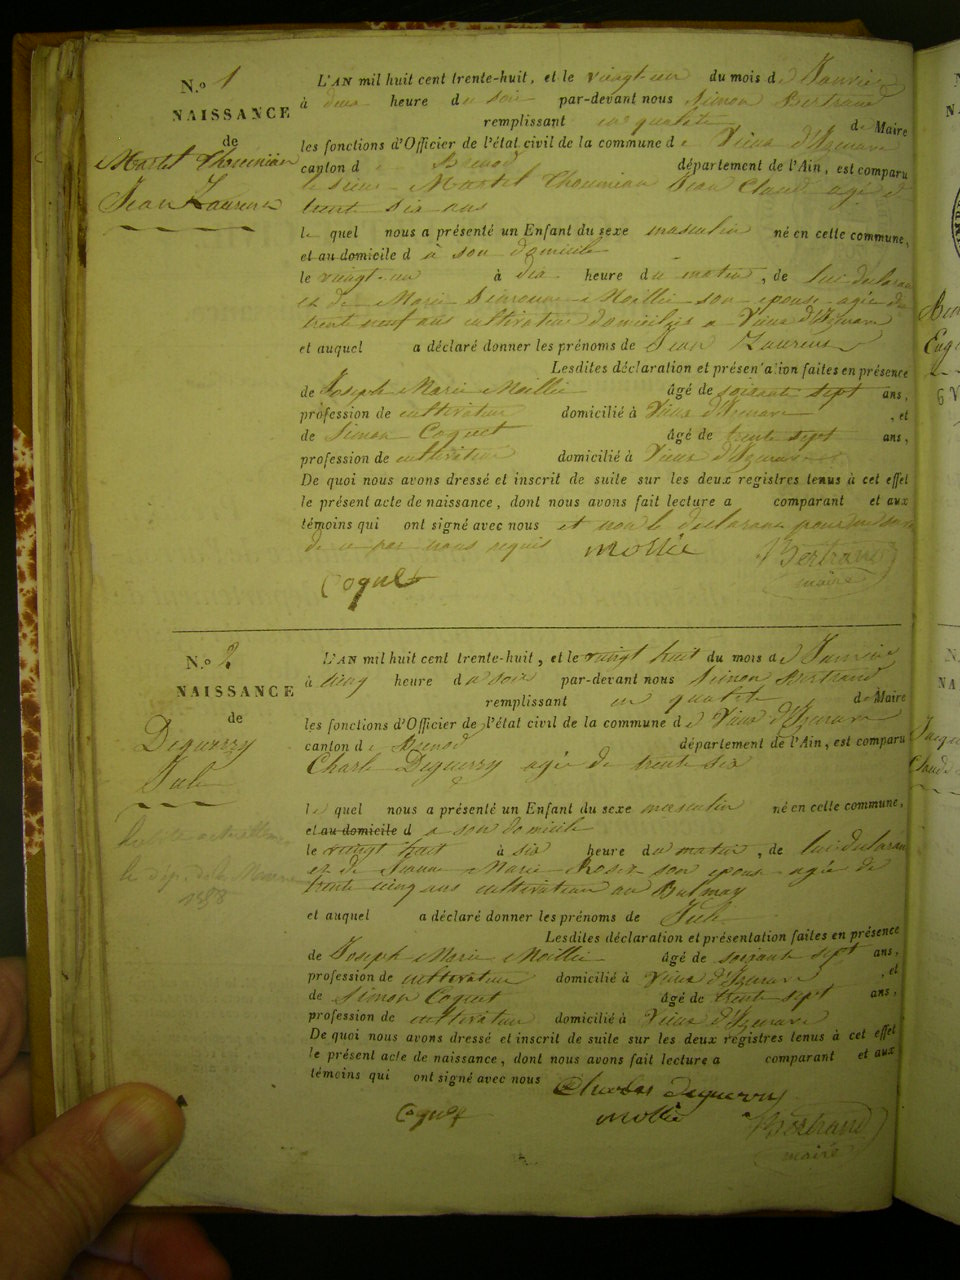 N.o 1
NAISSANCE
de
Martel Thouinian
Jean Laurens
L'AN mil huit cent trente-huit, et le vingt-un du mois de Janvier
à deux heure du soir par-devant nous Simon Bertrand
remplissant en qualité de Maire
les fonctions d'Officier de l'état civil de la commune de Vieux d'Izenave
canton de Brenod département de l'Ain, est comparu
le sieur Martel Thouinian Jean Claude agé de
trente six ans
le quel nous a présenté un Enfant du sexe masculin né en cette commune,
et au domicile d à son domicile
le vingt-un à dix heure du matin, de lui déclarant
et de Marie Moillie son epouse agée de
trente neuf ans cultivateur domiciliés a Vieux d'Izenave
et auquel a déclaré donner les prénoms de Jean Laurens
Lesdites déclaration et présentation faites en présence
de Joseph Marie Moillie âgé de soixante sept ans,
profession de cultivateur domicilié à Vieux d'Izenave, et
de Simon Coquet âgé de trente sept ans,
profession de cultivateur domicilié à Vieux d'Izenave
De quoi nous avons dressé et inscrit de suite sur les deux registres tenus à cet effet
le présent acte de naissance, dont nous avons fait lecture a comparant et aux
témoins qui ont signé avec nous et non le déclarant pour
de ce par nous requis Mollie Bertrand
Coquet maire
N.o 2
NAISSANCE
de
Deguerry
Jule
1858
L'AN mil huit cent trente-huit, et le vingt huit du mois de Janvier
à cinq heure du soir par-devant nous Simon Bertrand
remplissant en qualité de Maire
les fonctions d'Officier de l'état civil de la commune de Vieux d'Izenave
canton de Brenod département de l'Ain, est comparu
Charle Deguerry agée de trente six
le quel nous a présenté un Enfant du sexe masculin né en cette commune,
et au domicile d a son domicile
le vingt huit à six heure du matin, de lui déclarant
et de Jeanne Marie Rosier son epouse agée de
trente cinq ans cultivateur au Balmay
et auquel a déclaré donner les prénoms de Jule
Lesdites déclaration et présentation faites en présence
de Joseph Marie Moillie âgé de soixante sept ans,
profession de cultivateur domicilié à Vieux d'Izenave, et
de Simon Coquet âgé de trente sept ans,
profession de cultivateur domicilié à Vieux d'Izenave
De quoi nous avons dressé et inscrit de suite sur les deux registres tenus à cet effet
le présent acte de naissance, dont nous avons fait lecture a comparant et aux
témoins qui ont signé avec nous Charles Deguerry
Coquet Mollié Bertrand
maire